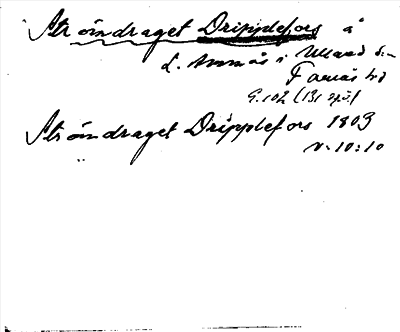 Strömdraget Dripplefors å
L. Ammås i Ullared sn
Faurås hd
G.102 (131 sp.)
Strömdraget Dripplefors 1803
N-10:10